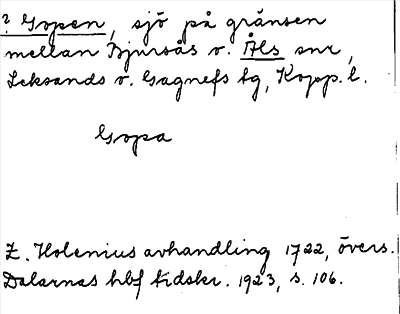 ? Gopen, sjö på gränsen
mellan Bjursås o. Åls snr,
Leksands o. Gagnefs tg, Kopp. l.
Gopa
Z. Holenius avhandling 1722, övers.
Dalarnas hbf tidskr. 1923, s. 106.